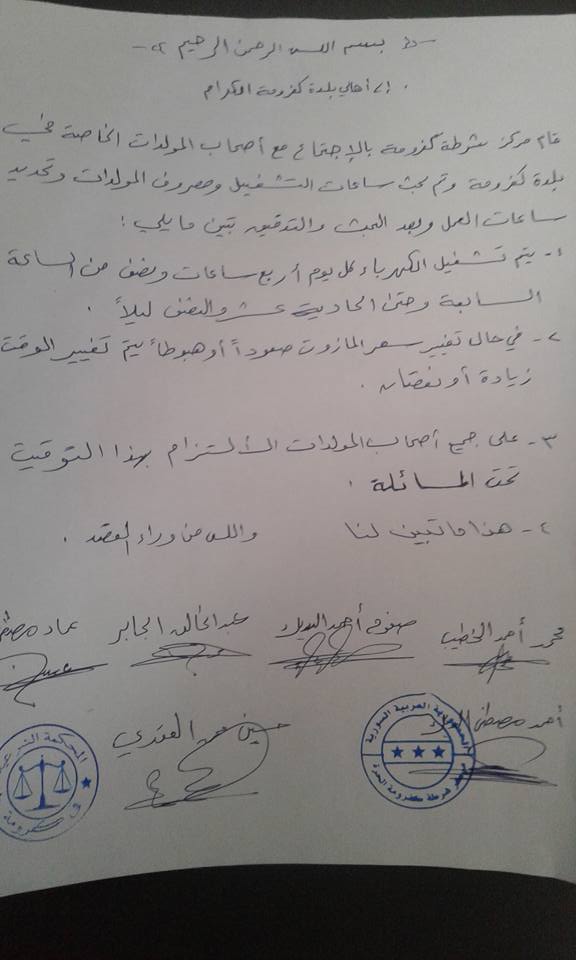 بسم الله الرحمن الرحيم
إلى أهالي بلدة كفرومة الكرام
قام مركز شرطة كفرومة بالإجتماع مع أصحاب المولدات الخاصة في
بلدة كفرومة وتم بحث ساعات التشغيل ومصروف المولدات وتحديد
ساعات العمل وبعد البحث والتدقيق تبين ما يلي :
١- يتم تشغيل الكهرباء كل يوم أربع ساعات ونصف من الساعة
السابعة وحتى الحادية عشر والنصف ليلاً .
٢- في حال تغيير سعر المازوت صعوداً أو هبوطاً يتم تغيير الوقت
زيادة أو نقصان .
٣- على جميع أصحاب المولدات الألتزام بهذا التوقيت
تحت المسائلة .
٤- هذا ما تبين لنا والله من وراء القصد .
محمد أحمد الخطيب صفوح أحمد عبد الخالق الجابر عماد
أحمد مصطفى حسين
الجمهورية العربية السورية
شرطة كفرومة الحرة
المحكمة الشرعية
في كفرومة